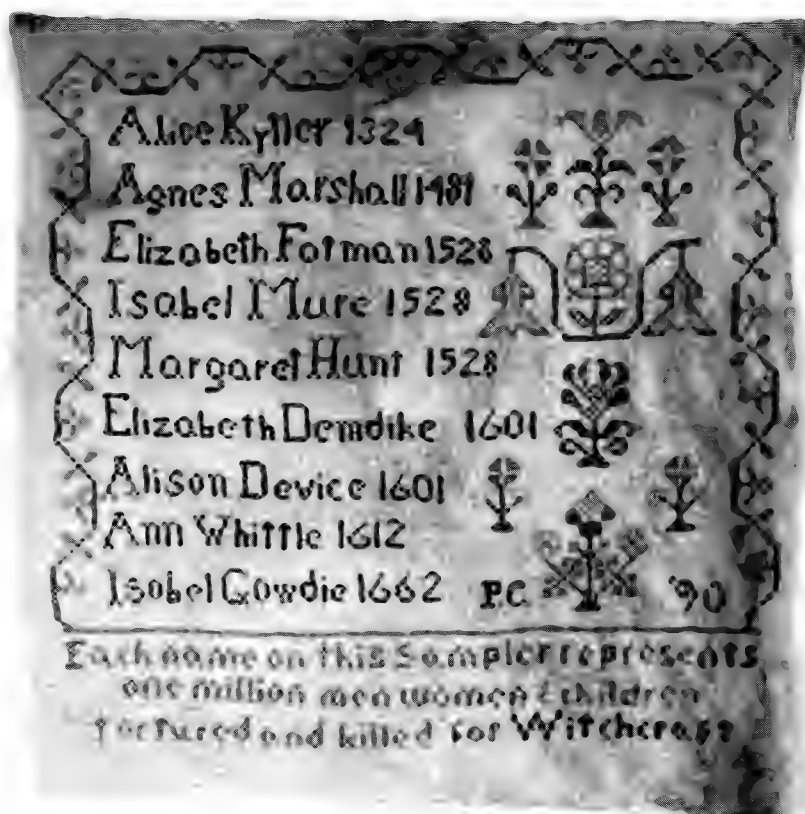 Alice Kyller 1324
Agnes Marshall 1481
Elizabeth Fotman 1528
Isabel Mure 1528
Margaret Hunt 1528
Elizabeth Demdike 1601
Alison Device 1601
Ann Whittle 1612
Isobel Gowdie 1662 P.C. '90
Each name on this Sampler represents
one million men women & children
tortured and killed for Witchcraft